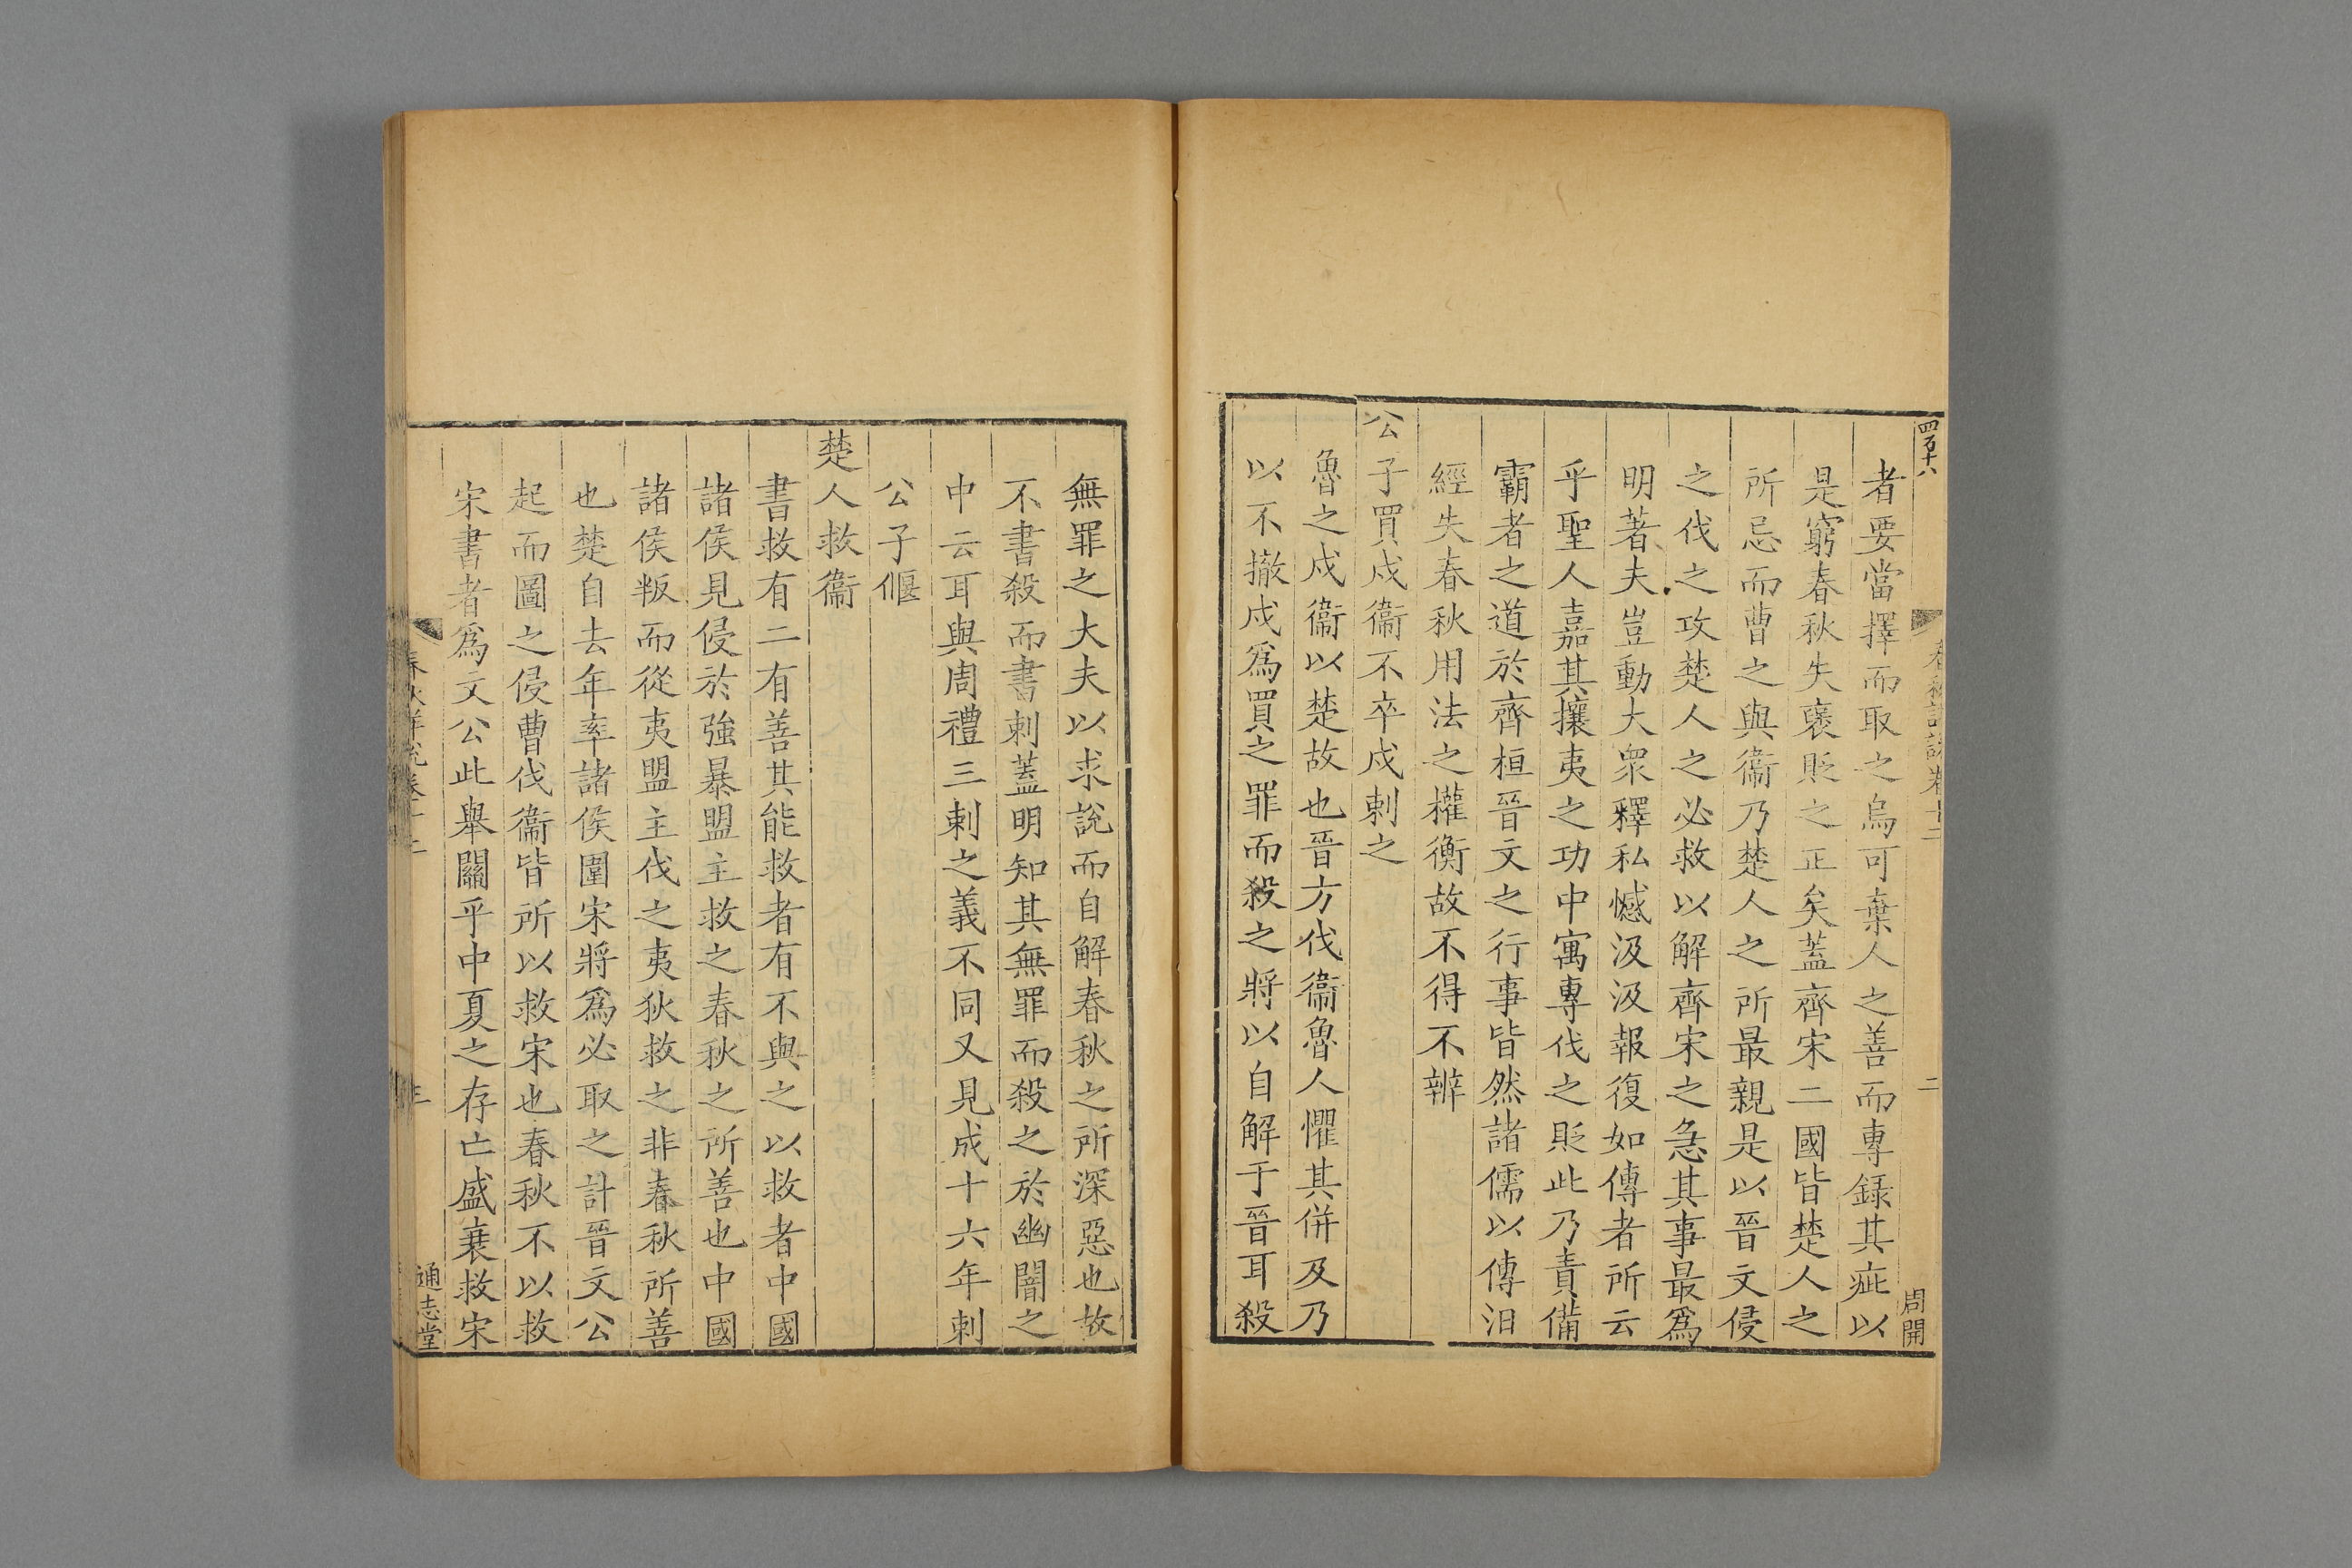 四百十八
春秋詳說卷十二
二
周開
者要當擇而取之烏可棄人之善而專録其疵以
是窮春秋失襃貶之正矣蓋齊宋二國皆楚人之
所忌而曹之與衞乃楚人之所最親是以晉文侵
之伐之攻楚人之必救以解齊宋之急其事最爲
明著夫豈動大衆釋私憾汲汲報復如傳者所云
乎聖人嘉其攘夷之功中寓專伐之貶此乃責備
霸者之道於齊桓晉文之行事皆然諸儒以傳汨
經失春秋用法之權衡故不得不辨
公子買戍衞不卒戍刺之
魯之戍衞以楚故也晉方伐衞魯人懼其併及乃
以不撤戍爲買之罪而殺之將以自解于晉耳殺
無罪之大夫以求說而自解春秋之所深惡也故
不書殺而書刺蓋明知其無罪而殺之於幽闇之
中云耳與周禮三刺之義不同又見成十六年刺
公子偃
楚人救衞
書救有二有善其能救者有不與之以救者中國
諸侯見侵於強暴盟主救之春秋之所善也中國
諸侯叛而從夷盟主伐之夷狄救之非春秋所善
也楚自去年率諸侯圍宋將爲必取之計晉文公
起而圖之侵曹伐衞皆所以救宋也春秋不以救
宋書者爲文公此舉關乎中夏之存亡盛衰救宋
春秋詳說卷十二
三
通志堂